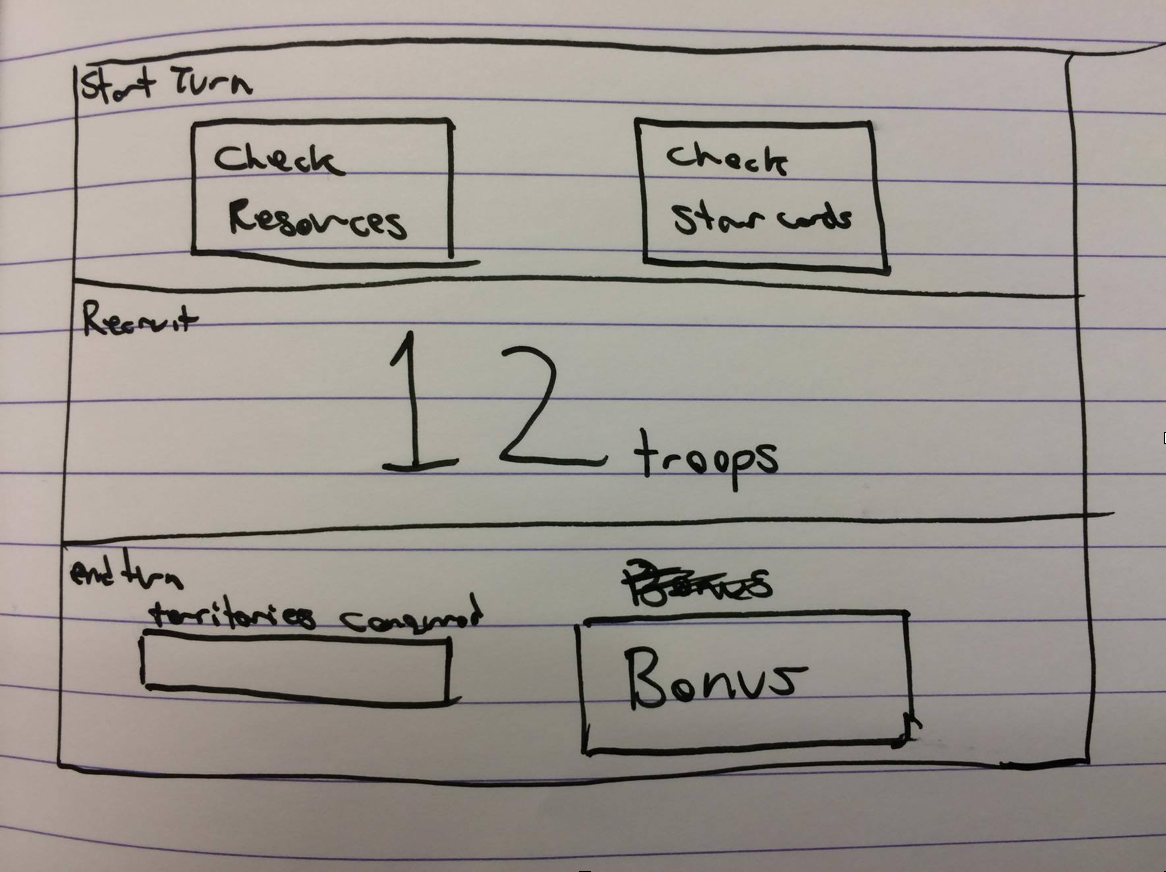 Start Turn
Check
Resources
Check
Star cards
Recruit
12 troops
end turn
territories conquered
Bonus
Bonus